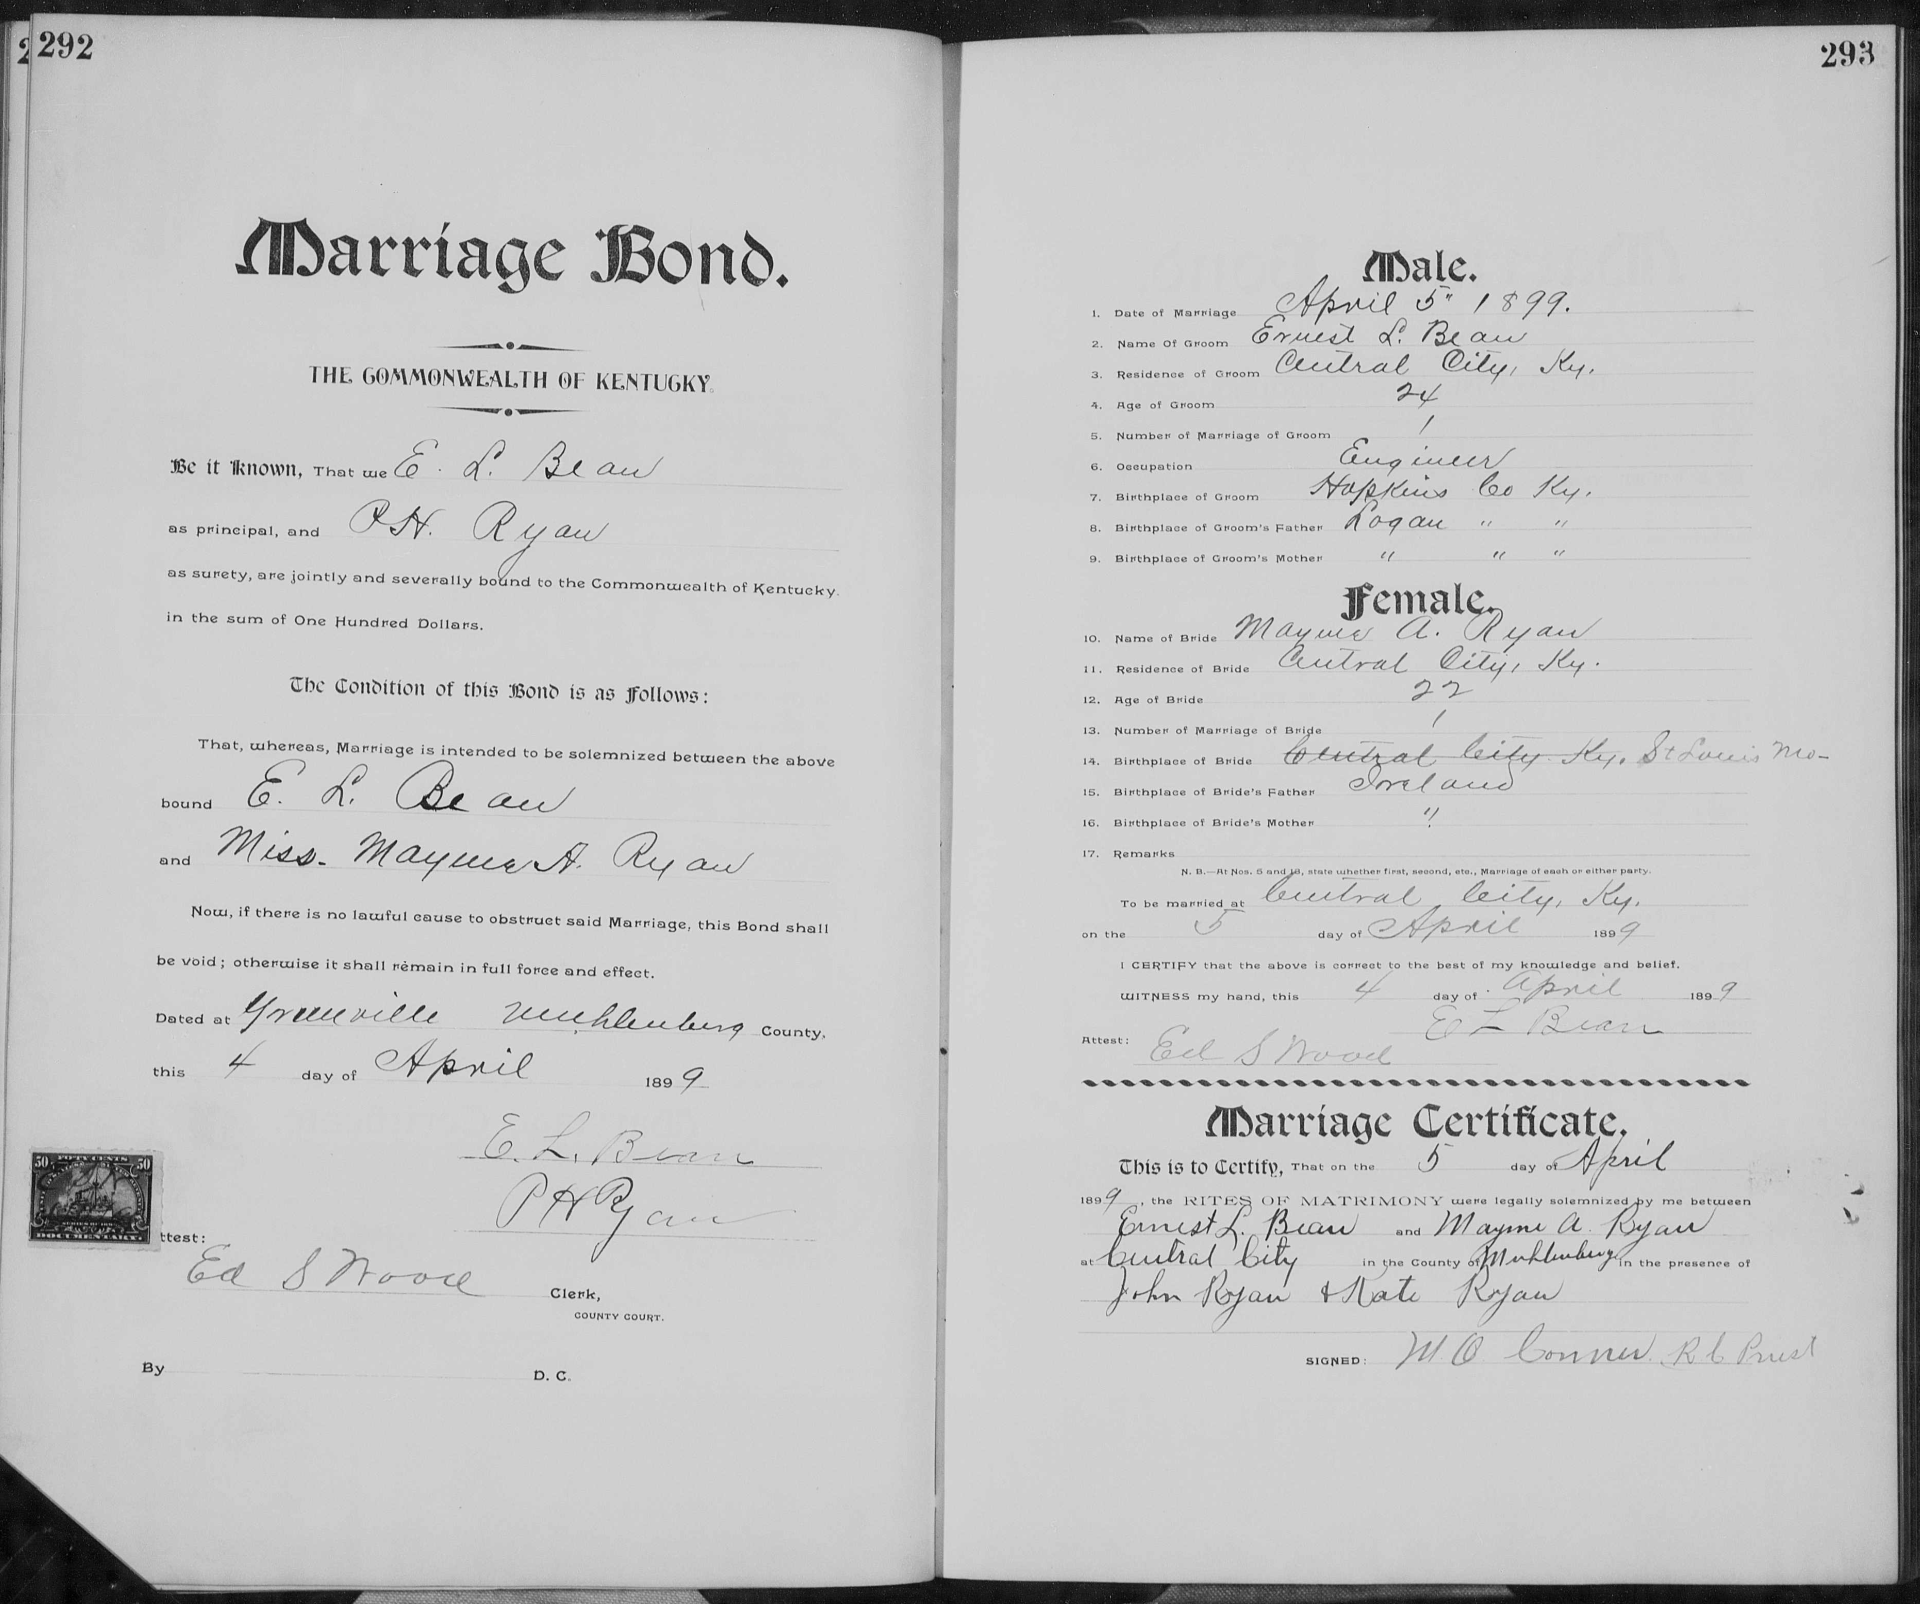 292
Marriage Bond.
THE COMMONWEALTH OF KENTUCKY.
Be it known, That we E. L. Bean
as principal, and P H. Ryan
as surety, are jointly and severally bound to the Commonwealth of Kentucky.
in the sum of One Hundred Dollars.
The Condition of this Bond is as Follows:
That, whereas, Marriage is intended to be solemnized between the above
bound E. L. Bean
and Miss. Mayme A. Ryan
Now, if there is no lawful cause to obstruct said Marriage, this Bond shall
be void; otherwise it shall remain in full force and effect.
Dated at Greenville Muhlenberg County.
this 4 day of April 1899
E. L. Bean
P H Ryan
50 FIFTY CENTS 50
DOCUMENTARY.
ttest:
Ed S Wood Clerk,
COUNTY COURT.
By D. C.
293
Male.
1. Date of Marriage April 5" 1899.
2. Name Of Groom Ernest L. Bean
3. Residence of Groom Central City, Ky.
4. Age of Groom 24
5. Number of Marriage of Groom 1
6. Occupation Engineer
7. Birthplace of Groom Hopkins Co Ky.
8. Birthplace of Groom's Father Logan " "
9. Birthplace of Groom's Mother " " "
Female.
10. Name of Bride Mayme A. Ryan
11. Residence of Bride Central City, Ky.
12. Age of Bride 22
13. Number of Marriage of Bride 1
14. Birthplace of Bride Central City Ky. St Louis Mo-
15. Birthplace of Bride's Father Ireland
16. Birthplace of Bride's Mother "
17. Remarks
N. B.—At Nos. 5 and 13, state whether first, second, etc., Marriage of each or either party.
To be married at Central City, Ky.
on the 5 day of April 1899
I CERTIFY that the above is correct to the best of my knowledge and belief.
WITNESS my hand, this 4 day of April 1899
E L Bean
Attest: Ed S Wood
Marriage Certificate.
This is to Certify, That on the 5 day of April
1899, the RITES OF MATRIMONY were legally solemnized by me between
Ernest L. Bean and Mayme A. Ryan
at Central City in the County of Muhlenberg in the presence of
John Ryan & Kate Ryan
SIGNED: M. O Conner. R C Priest